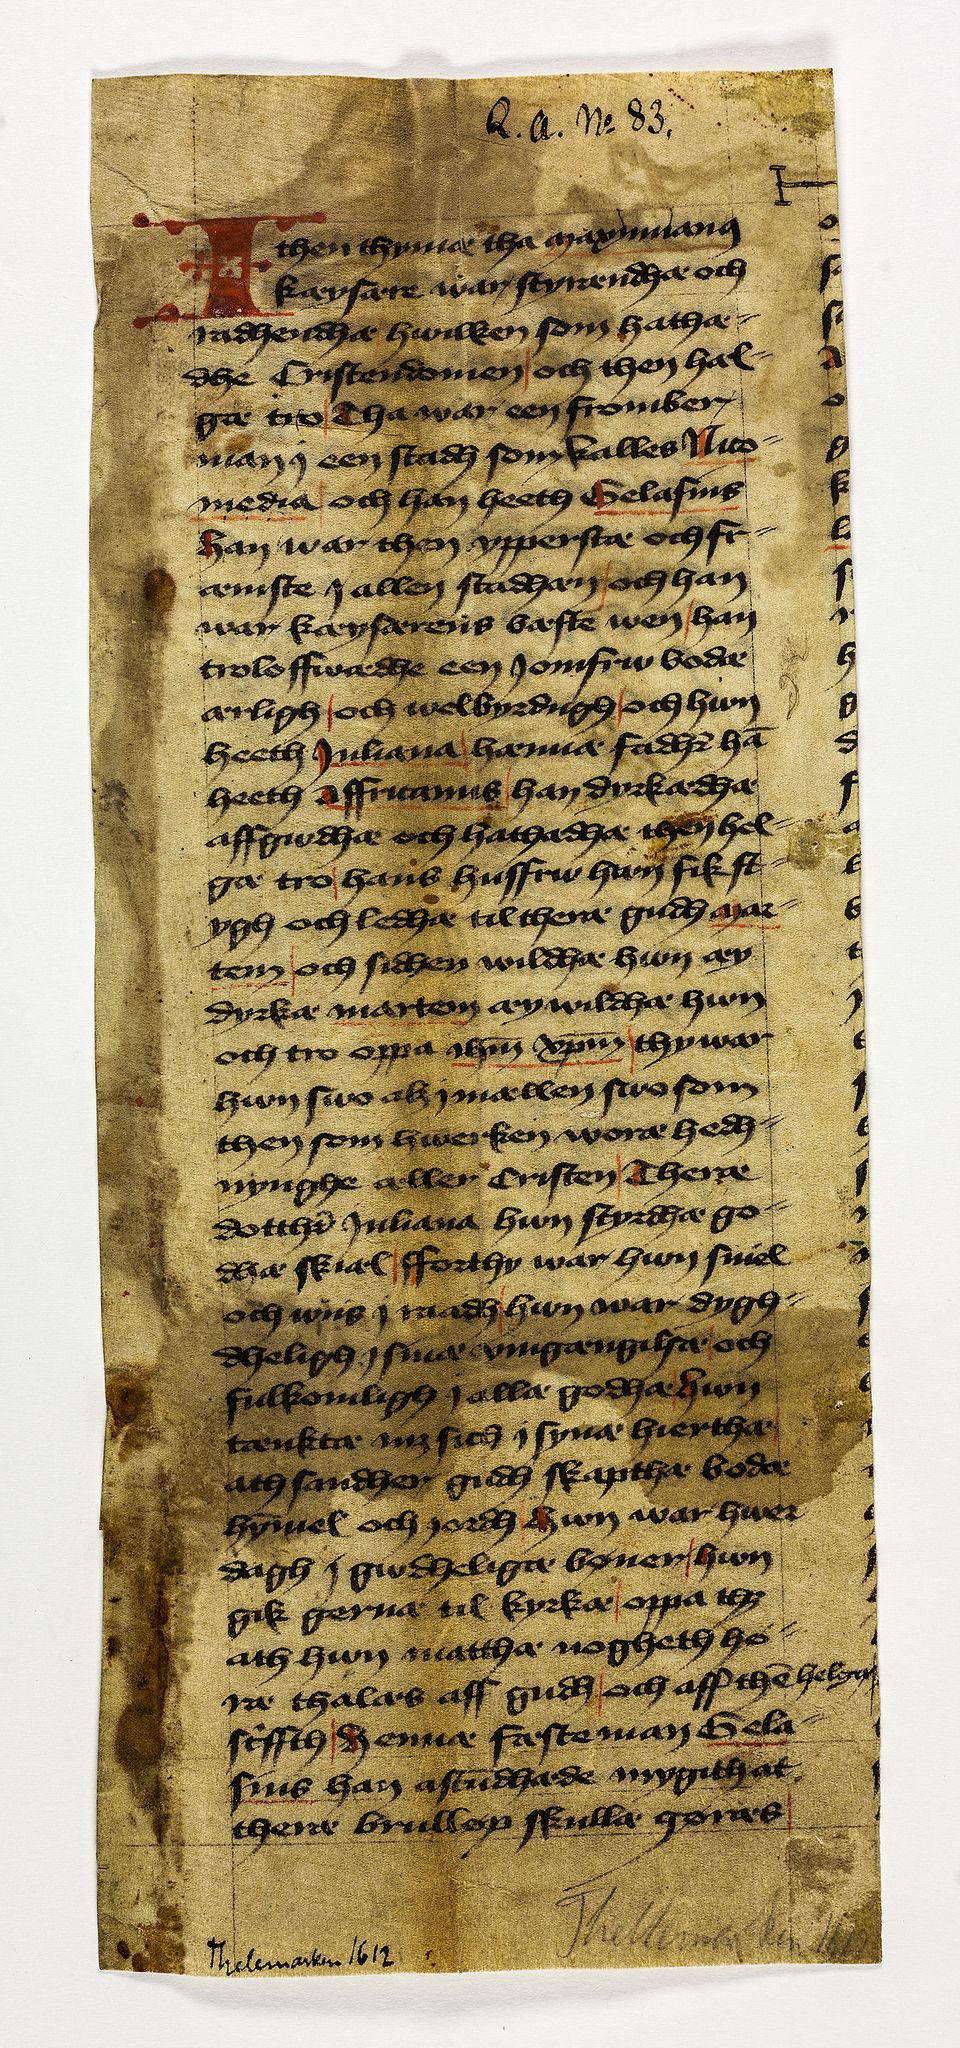 R. A. No 83.
I then thymæ tha maximianus
kæysære war styrændhæ och
radhendhæ hwilken som hathæ-
dhe Cristendomen och then hæl-
gæ tro Tha war een fromber
man j een stadh som kalles Nico-
media och han heeth Gelasius
han war then ypperstæ och fr-
æmste j allen stadhæn och han
war kæysærens bæste wen han
troloffwædhe een Jomfrw bodæ
ærligh och welbyrdugh och hwn
heeth Juliana hænnæ fadhr hā
heeth Affricanus han dyrkædhæ
affgwdhæ och hathædhæ then hel-
gæ tro hans hussfrw hwn fik st-
ygh och ledhæ til theræ gudh mar-
tem och sidhen wildhæ hwn æy
dyrkæ martem æy wildhæ hwn
och tro oppa ihm xpm thy war
hwn swo ak j mællen swo som
then som hwerken woræ hedh-
nynghe æller Cristen Theræ
dotthr Juliana hwn styrdhæ go-
dhæ skiæl fforthy war hwn sniel
och wiis j raadh hwn war dygh-
dheligh j sinæ vmgængilsæ och
fulkomligh j allæ godhæ hwn
tænktæ mz sich j synæ hierthæ
ath sandher gudh skapthæ bodæ
hymel och jordh hwn war hwer
dagh j gwdheligæ böner hwn
gik gernæ til kyrkæ oppa thz
ath hwn matthæ nogheth hö-
ræ thalæs aff gudh och aff thē helgæ
scifth Hennæ fæste man Gela-
sius han astūdhade mygith at
theræ brullop skullæ göræs
Thelemarken 1612
Thellemarken 1612